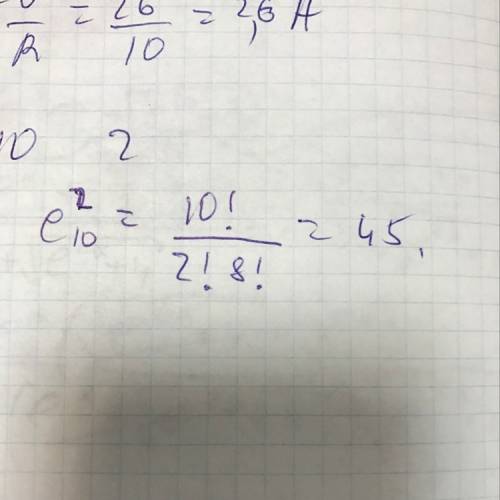 /R = 26/10 = 2,6 A
10 2
C²₁₀ = 10!/2! 8! = 45,